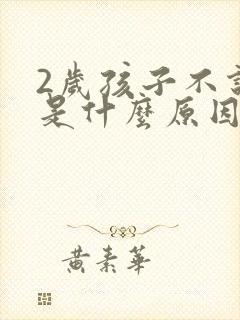 2歲孩子不
是什麼原因
黃素華